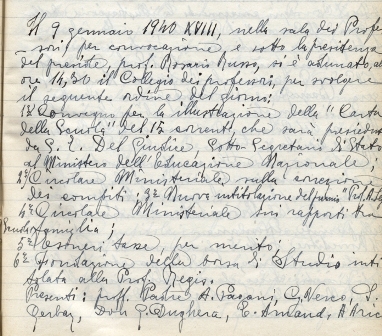 Il 9 gennaio 1940 XVIII, nella sala dei Profes-
sori per convocazione e sotto la presidenza
del preside, prof. Rosario Russo, si è adunato, alle
ore 14,30 il Collegio dei professori, per svolgere
il seguente ordine del giorno:
1º Convegno per la illustrazione della "Carta
della Scuola" del 15 corrente, che sarà presieduto
da S. E. Del Giudice, Sotto Segretario di Stato
al Ministero dell'Educazione Nazionale;
2º Circolare Ministeriale sulla correzione
dei compiti; 3º Nuova intitolazione del
4º Circolare Ministeriale sui rapporti tra
famiglia;
5º Esoneri tasse per merito;
6º Fondazione della borsa di Studio inti-
tolata alla Prof. Regis.
Presenti: proff. Padre A. Pagani, C. Vesco, S.
Don G. Inghera, E. Amand,